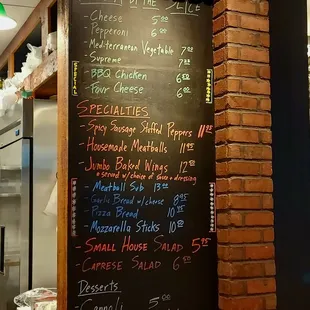 SLICE
- Cheese 5.00
- Pepperoni 6.00
- Mediterranean Vegetable 7.00
- Supreme 7.00
- BBQ Chicken 6.00
- Four Cheese 6.00
SPECIALTIES
- Spicy Sausage Stuffed Peppers 11.95
- Housemade Meatballs 11.95
- Jumbo Baked Wings 12.00
served w/ choice of sauce + dressing
- Meatball Sub 13.95
- Garlic Bread w/cheese 8.95
- Pizza Bread 10.95
- Mozzarella Sticks 10.95
- SMALL HOUSE SALAD 5.95
- CAPRESE SALAD 6.00
Desserts
- Cannoli 5.00